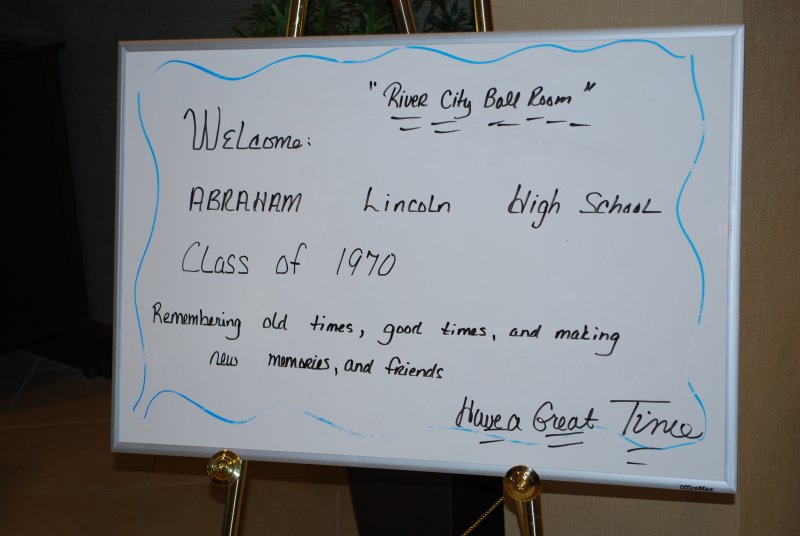 "River City Ball Room"
Welcome:
ABRAHAM Lincoln High School
Class of 1970
Remembering old times, good times, and making
new memories, and friends
Have a Great Time
OfficeMax